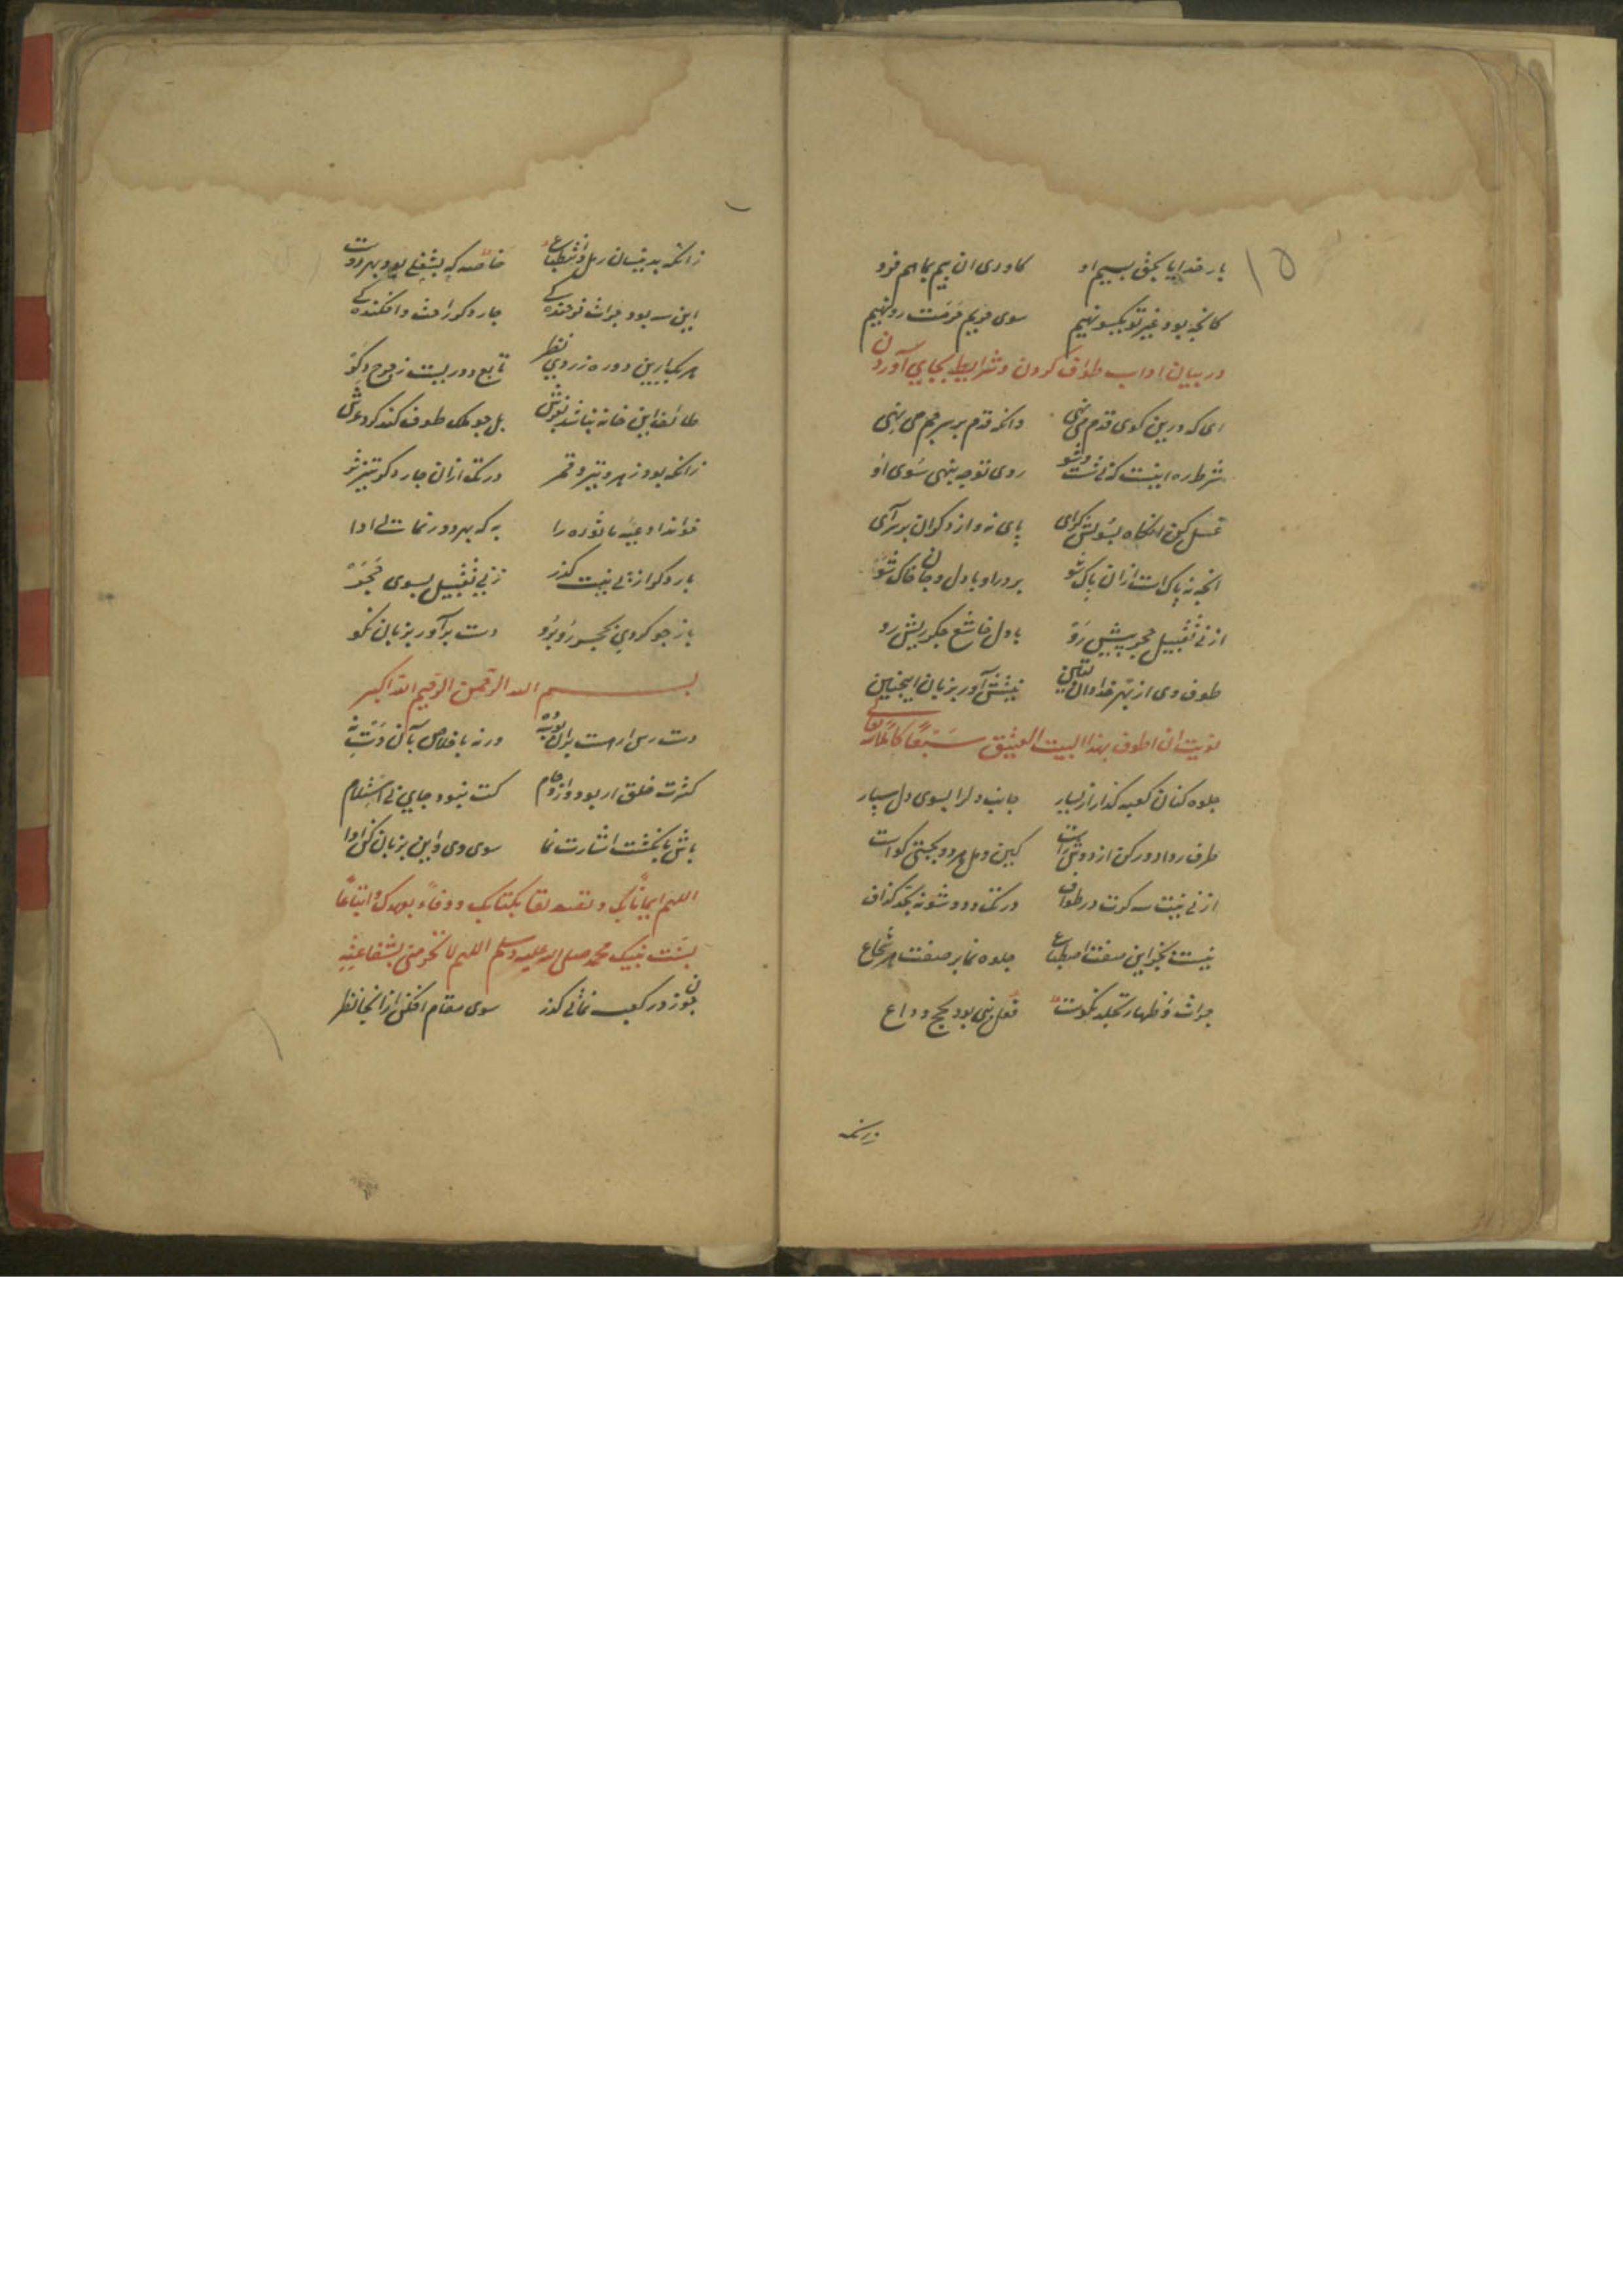 ۱۵
بار خدایا بحق بسیم او کاوری ان بیم بما هم فرو
کانچه بود غیر تو یکسو نهیم سوی حریم حرمت رو نهیم
در بیان اداب طواف کردن و شرایط بجای آوردن
ای که درین کوی قدم می نهی وانکه قدم بر سر هم می نهی
شرط ره اینست که شست و شو روی توجه بنهی سوی او
غسل کن انکاه بسویش کرای پای نه و از دکران برتر آی
انچه نه پاک است ازان پاک شو بر در او با دل و جان خاک شو
از پی تقبیل حجر پیش رو با دل خاشع جکر ریش رو
طوف وی از بهر خدا دان یقین نیتش آور بزبان اینچنین
نویت ان اطوف بهذا البیت العتیق سبعا کاملا
جلوه کنان کعبه کذار از یسار جانب دلرا بسوی دل سپار
طرف ردا دور کن از دوش راست کین دهل هر دو بحجتی کواست
از پی نیت سه کرت در طواف در تک و دو شو نه بحد کزاف
نیست بجز این صفت اضطباع جلوه نما بر صفت هر شجاع
جرات و اظهار تجلد نکوست فعل نبی بود بحج وداع
زانکه
زانکه بدینسان رمل و اضطباع خاصه که بشغلی بود بهر دوست
این سه بود جرات فرخنده کی چار دکر راحت و افکندکی
هر یکی ازین دوره ز روی نظر تابع دوریست ز چرخ دکر
طائف این خانه نباشد بفرش بل چو ملک طوف کند کرد عرش
زانکه بود زهره و تیر و قمر در تک ازان چار دکر تیز تر
خواند ادعیه ماثوره را به که بهر دور نمائی ادا
بار دکر از پی نیت کذر زپی تقبیل بسوی حجر
باز چو کردی بحجر روبرو دست برآور بزبان نکو
بسم الله الرحمن الرحیم الله اکبر
دست رس ار هست بران بوسه ده ورنه باخلاص بآن دست نه
کثرت خلق ار بود و ازدحام کت نبود جای پی استلام
باش بانکشت اشارت نما سوی وی و این بزبان کن ادا
اللهم ایمانا بک و تصدیقا بکتابک و وفاء بعهدک و اتباعا
بسنت نبیک محمد صلی الله علیه وسلم اللهم لا تحرمنی بشفاعته
چون ز در کعبه نمائی کذر سوی مقام افکن ازانجا نظر